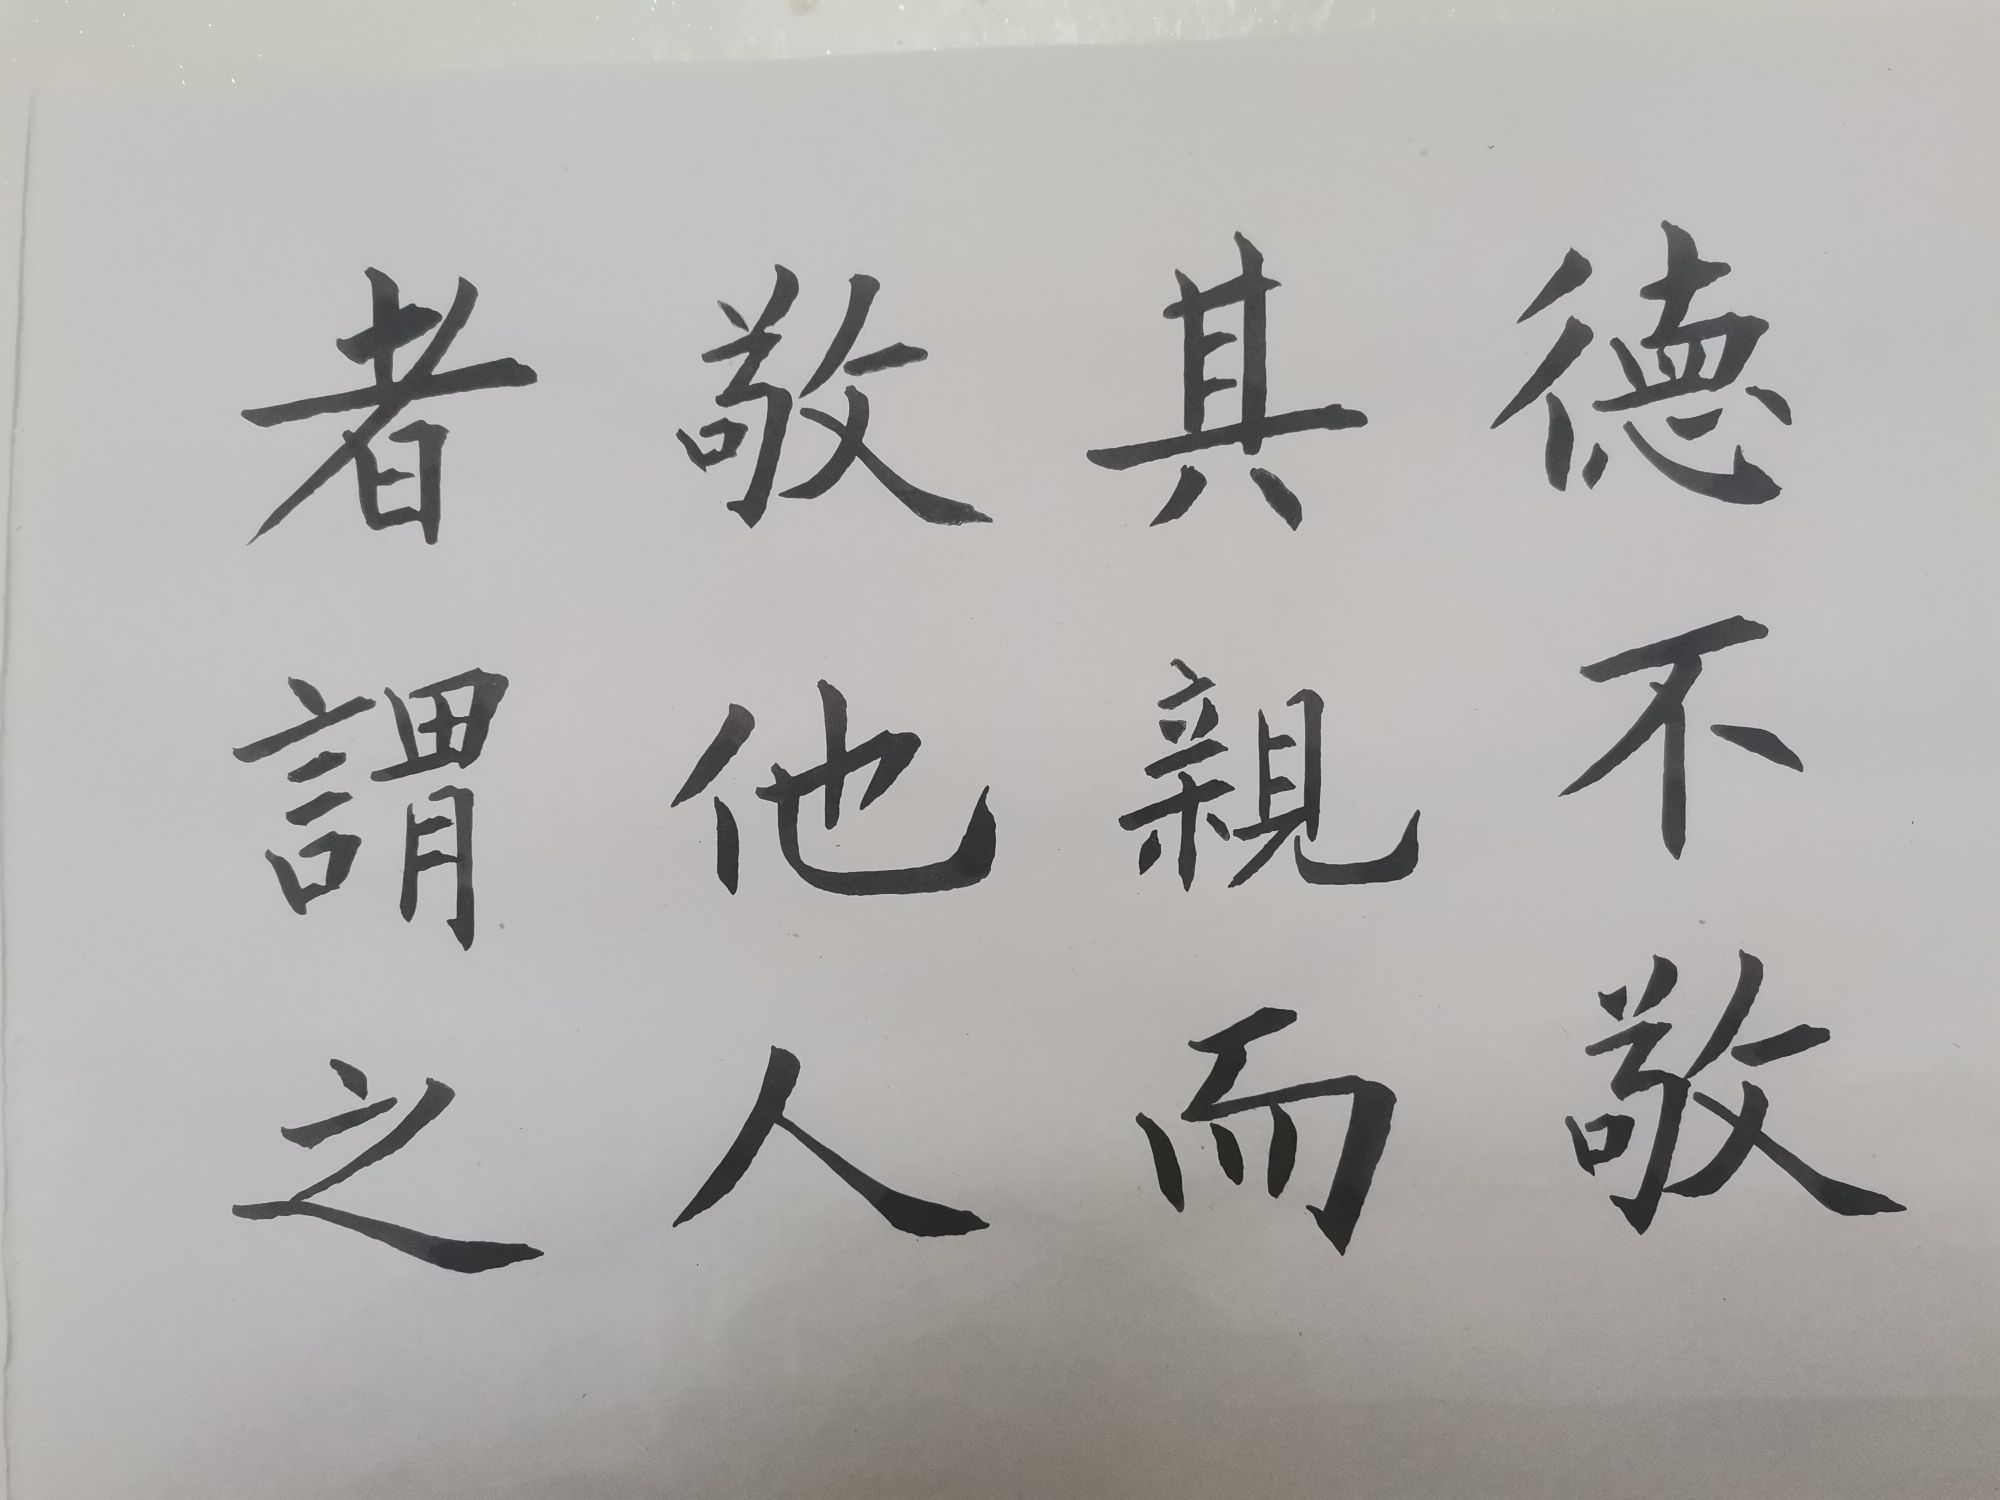 德不敬
其親而
敬他人
者謂之